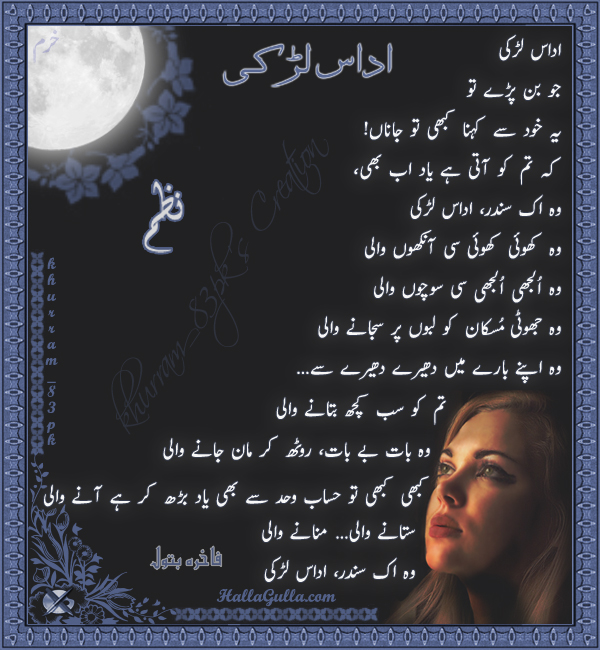 خرم
اداس لڑکی
نظم
اداس لڑکی
جو بن پڑے تو
یہ خود سے کہنا کبھی تو جاناں!
کہ تم کو آتی ہے یاد اب بھی،
وہ اک سندر، اداس لڑکی
وہ کھوئی کھوئی سی آنکھوں والی
وہ اُلجھی اُلجھی سی سوچوں والی
وہ جھوٹی مُسکان کو لبوں پر سجانے والی
وہ اپنے بارے میں دھیرے دھیرے سے...
تم کو سب کچھ بتانے والی
وہ بات بے بات، روٹھ کر مان جانے والی
کبھی کبھی تو حساب وحد سے بھی یاد بڑھ کر ہے آنے والی
ستانے والی... منانے والی
وہ اک سندر، اداس لڑکی
فاخرہ بتول
HallaGulla.com
khurram_83pk
Khurram_83pk's Creation